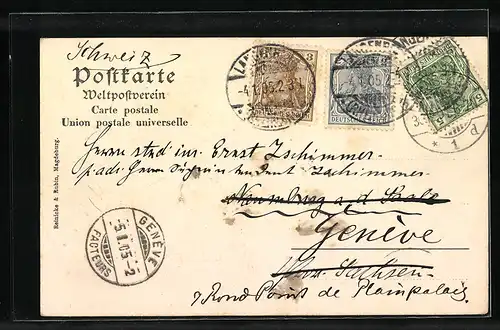 Schweiz
Postkarte
Weltpostverein
Carte postale
Union postale universelle
3
-4.1.05.2-3N
DEUTSCHES REICH
Herrn stud. ing. Ernst Zschimmer
p. adr. Herrn Zschimmer
Naumburg a. d. Saale
Genève
Prov. Sachsen
7 Rond Point de Plainpalais
Reinicke & Rubin, Magdeburg.
GENÈVE
-5.I.05.-2
FACTEURS